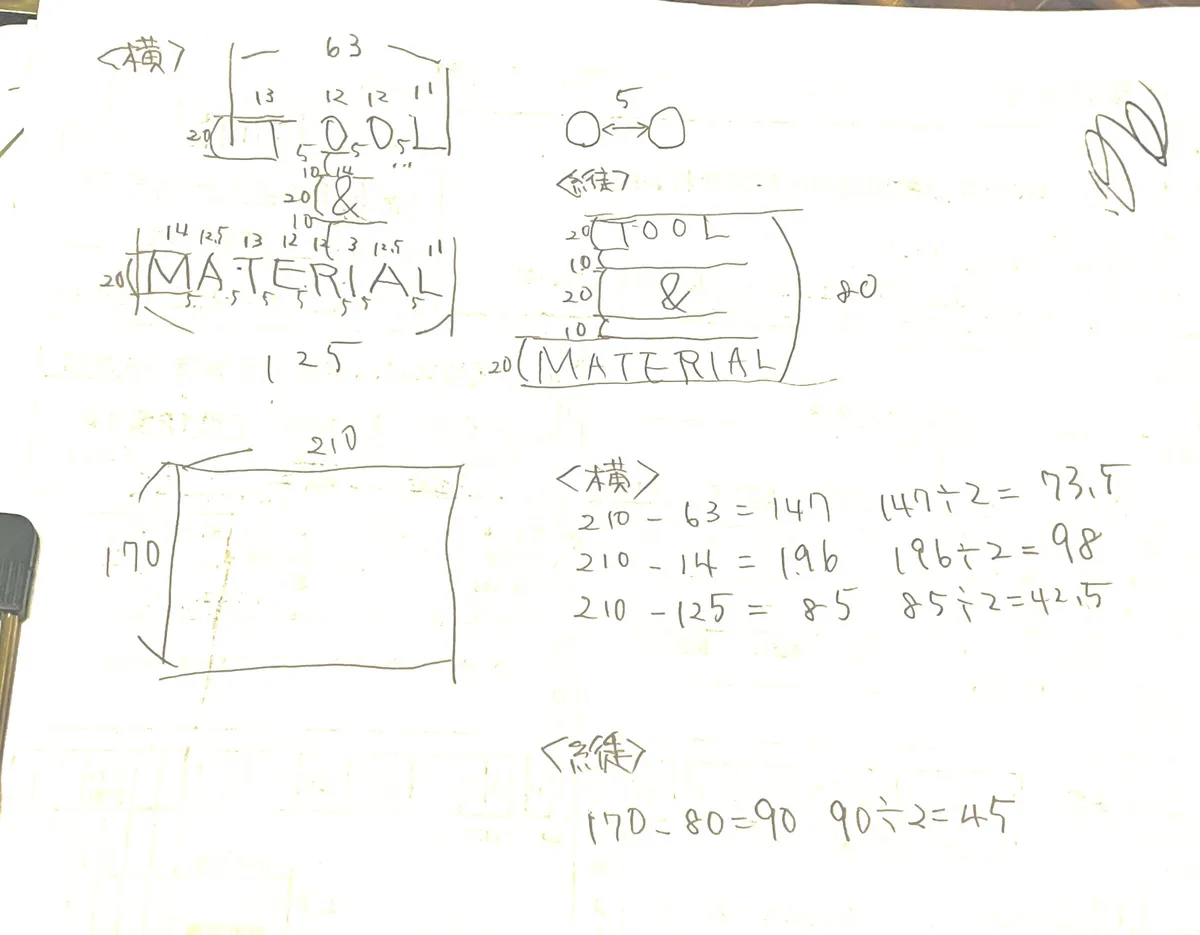 <横>
63
13 12 12 11
20 TOOL
5 5 5
10 14 ...
20 &
10
14 12.5 13 12 12 3 12.5 11
20 MATERIAL
5 5 5 5 5 5 5
125
5
○↔○
<縦>
20 TOOL
10
20 &
10
20 MATERIAL
80
210
170
<横>
210 - 63 = 147 147÷2 = 73.5
210 - 14 = 196 196÷2 = 98
210 - 125 = 85 85÷2=42.5
<縦>
170 - 80=90 90÷2=45